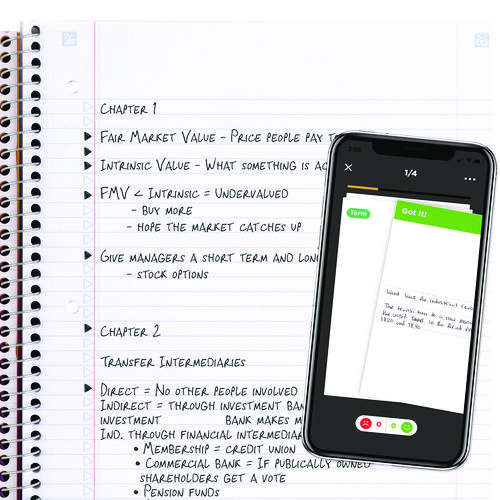 CHAPTER 1
FAIR MARKET VALUE - PRICE PEOPLE PAY
INTRINSIC VALUE - WHAT SOMETHING IS
FMV < INTRINSIC = UNDERVALUED
- BUY MORE
- HOPE THE MARKET CATCHES UP
GIVE MANAGERS A SHORT TERM AND
- STOCK OPTIONS
CHAPTER 2
TRANSFER INTERMEDIARIES
DIRECT = NO OTHER PEOPLE INVOLVED
INDIRECT = THROUGH INVESTMENT
INVESTMENT BANK MAKES
IND. THROUGH FINANCIAL
• MEMBERSHIP = CREDIT UNION
• COMMERCIAL BANK = IF PUBLICALLY OWNED
SHAREHOLDERS GET A VOTE
• PENSION FUNDS
1/4
Term
Got It!
What was the industrial
The transition to a new
1820 and 1840
0 0